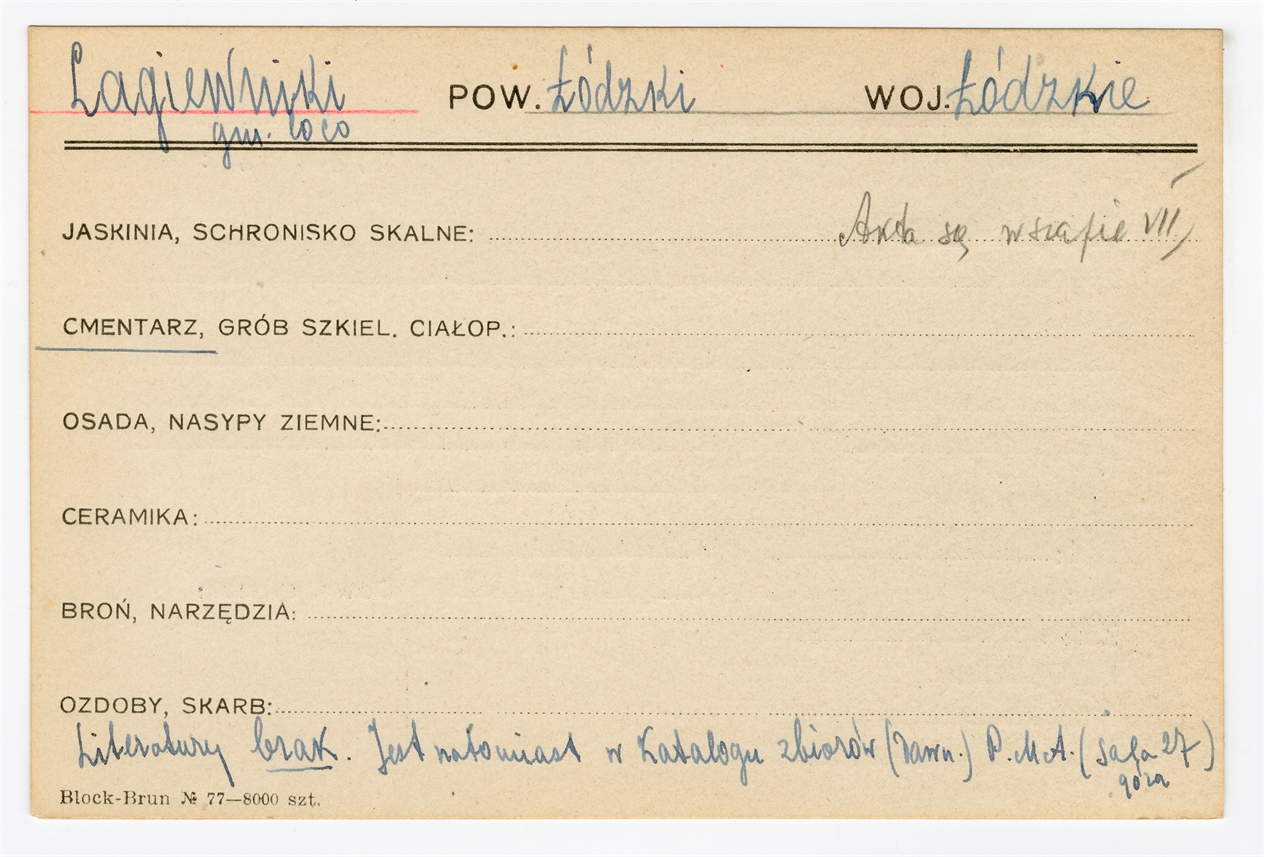 Łagiewniki POW. Łódzki WOJ. Łódzkie
gm. loco
JASKINIA, SCHRONISKO SKALNE: Akta są w szafie VII
CMENTARZ, GRÓB SZKIEL. CIAŁOP.:
OSADA, NASYPY ZIEMNE:
CERAMIKA:
BROŃ, NARZĘDZIA:
OZDOBY, SKARB:
Literatury brak. Jest natomiast w Katalogu zbiorów (dawn.) P.M.A. (sala 27)
góra
Block-Brun № 77—8000 szt.